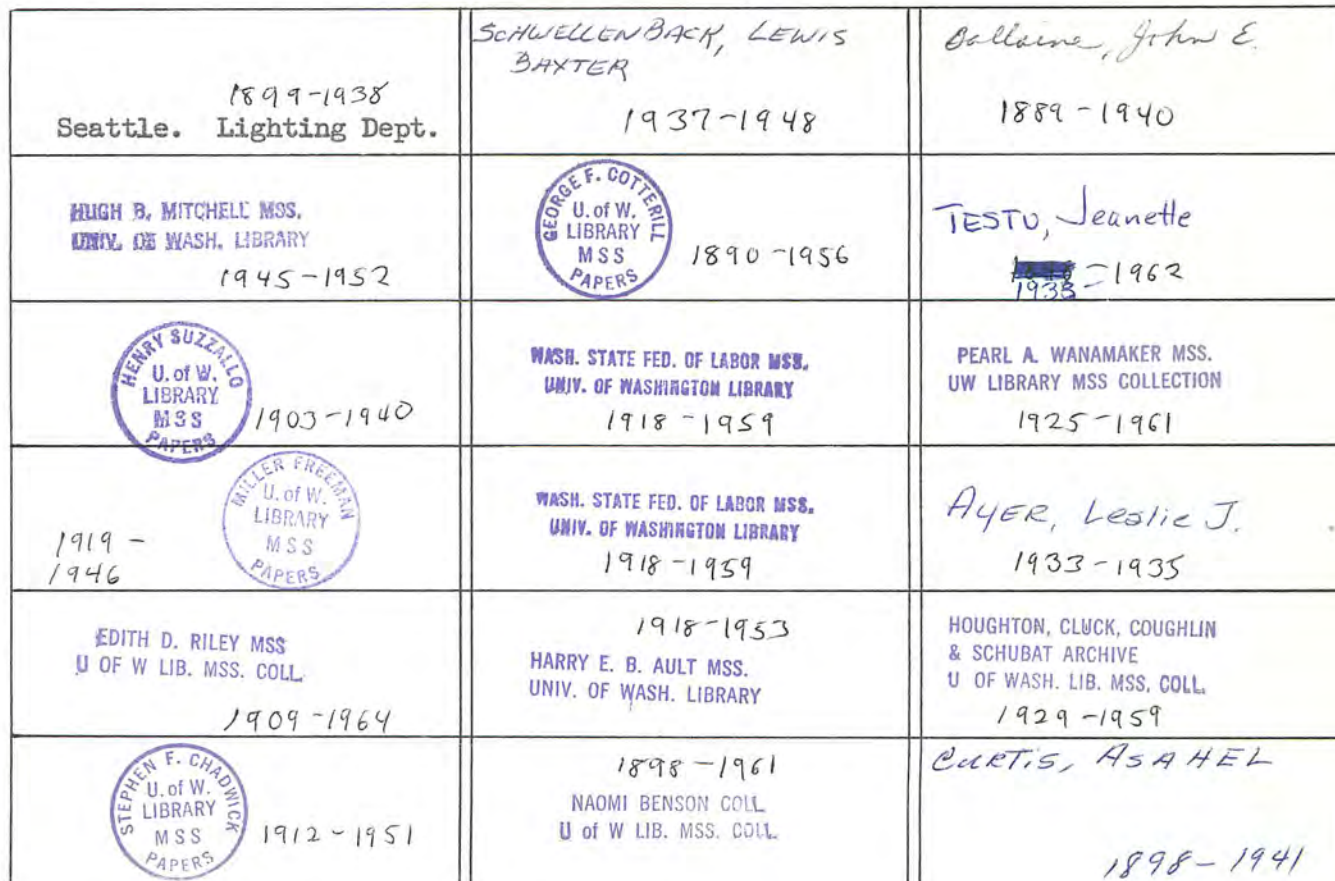 1899-1938
Seattle. Lighting Dept.
SCHWELLENBACK, LEWIS
BAXTER
1937-1948
Ballaine, John E.
1889-1940
HUGH B. MITCHELL MSS.
UNIV. OF WASH. LIBRARY
1945-1952
GEORGE F. COTTERILL
U. of W.
LIBRARY
MSS
PAPERS
1890-1956
TESTU, Jeanette
1938-1962
HENRY SUZZALLO
U. of W.
LIBRARY
MSS
PAPERS
1903-1940
WASH. STATE FED. OF LABOR MSS.
UNIV. OF WASHINGTON LIBRARY
1918-1959
PEARL A. WANAMAKER MSS.
UW LIBRARY MSS COLLECTION
1925-1961
1919-
1946
MILLER FREEMAN
U. of W.
LIBRARY
MSS
PAPERS
WASH. STATE FED. OF LABOR MSS.
UNIV. OF WASHINGTON LIBRARY
1918-1959
AYER, Leslie J.
1933-1935
EDITH D. RILEY MSS
U OF W LIB. MSS. COLL.
1909-1964
1918-1953
HARRY E. B. AULT MSS.
UNIV. OF WASH. LIBRARY
HOUGHTON, CLUCK, COUGHLIN
& SCHUBAT ARCHIVE
U OF WASH. LIB. MSS. COLL.
1929-1959
STEPHEN F. CHADWICK
U. of W.
LIBRARY
MSS
PAPERS
1912-1951
1898-1961
NAOMI BENSON COLL.
U of W LIB. MSS. COLL.
CURTIS, ASAHEL
1898-1941